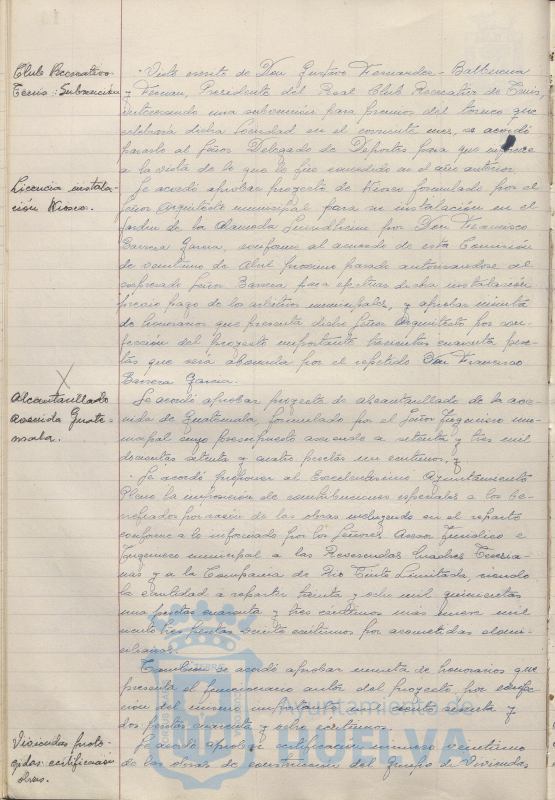 Club Recreativo
Tenis: Subvención
Visto escrito de Don Gustavo Fernandez-Balbuena
y Ferran, Presidente del Real Club Recreativo de Tenis,
interesando una subvención para premios del torneo que
celebrará dicha Sociedad en el corriente mes, se acordó
pasarlo al Señor Delegado de Deportes para que informe
a la vista de lo que le fue concedido en el año anterior.
Licencia instala-
ción Kiosco.
Se acordó aprobar proyecto de Kiosco formulado por el
Señor Arquitecto municipal para su instalación en el
Jardin de la Alameda Sundheim por Don Francisco
Barrera Garcia, conforme al acuerdo de esta Comisión
de veintiuno de Abril proximo pasado autorizandose al
expresado Señor Barrera para efectuar dicha instalación
previo pago de los arbitrios municipales, y aprobar minuta
de honorarios que presenta dicho Señor Arquitecto por con-
fección del proyecto importante trescientas cuarenta pese-
tas que será abonada por el repetido Don Francisco
Barrera Garcia.
Alcantarillado
Avenida Guate-
mala.
Se acordó aprobar proyecto de alcantarillado de la ave-
nida de Guatemala, formulado por el Señor Ingeniero mu-
nicipal cuyo presupuesto asciende a setenta y tres mil
doscientas setenta y cuatro pesetas un centimo, y
Se acordó proponer al Excelentisimo Ayuntamiento
Pleno la imposición de contribuciones especiales a los be-
neficiados por razón de las obras incluyendo en el reparto
conforme a lo informado por los Señores Asesor Juridico e
Ingeniero municipal a las Reverendas Madres Teresia-
nas y a la Compañia de Rio Tinto Limitada, siendo
la cantidad a repartir treinta y ocho mil quinientas
una pesetas cuarenta y tres céntimos más nueve mil
ciento tres pesetas veinte centimos por acometidas domi-
ciliarias.
Tambien se acordó aprobar minuta de honorarios que
presenta el funcionario autor del proyecto por confec-
ción del mismo importante mil ciento sesenta y
dos pesetas cuarenta y ocho centimos.
Viviendas prote-
gidas certificación
obras.
Se acordó aprobar certificación número veintiuno
de las obras de construcción del Grupo de Viviendas
Ayuntamiento de
HUELVA